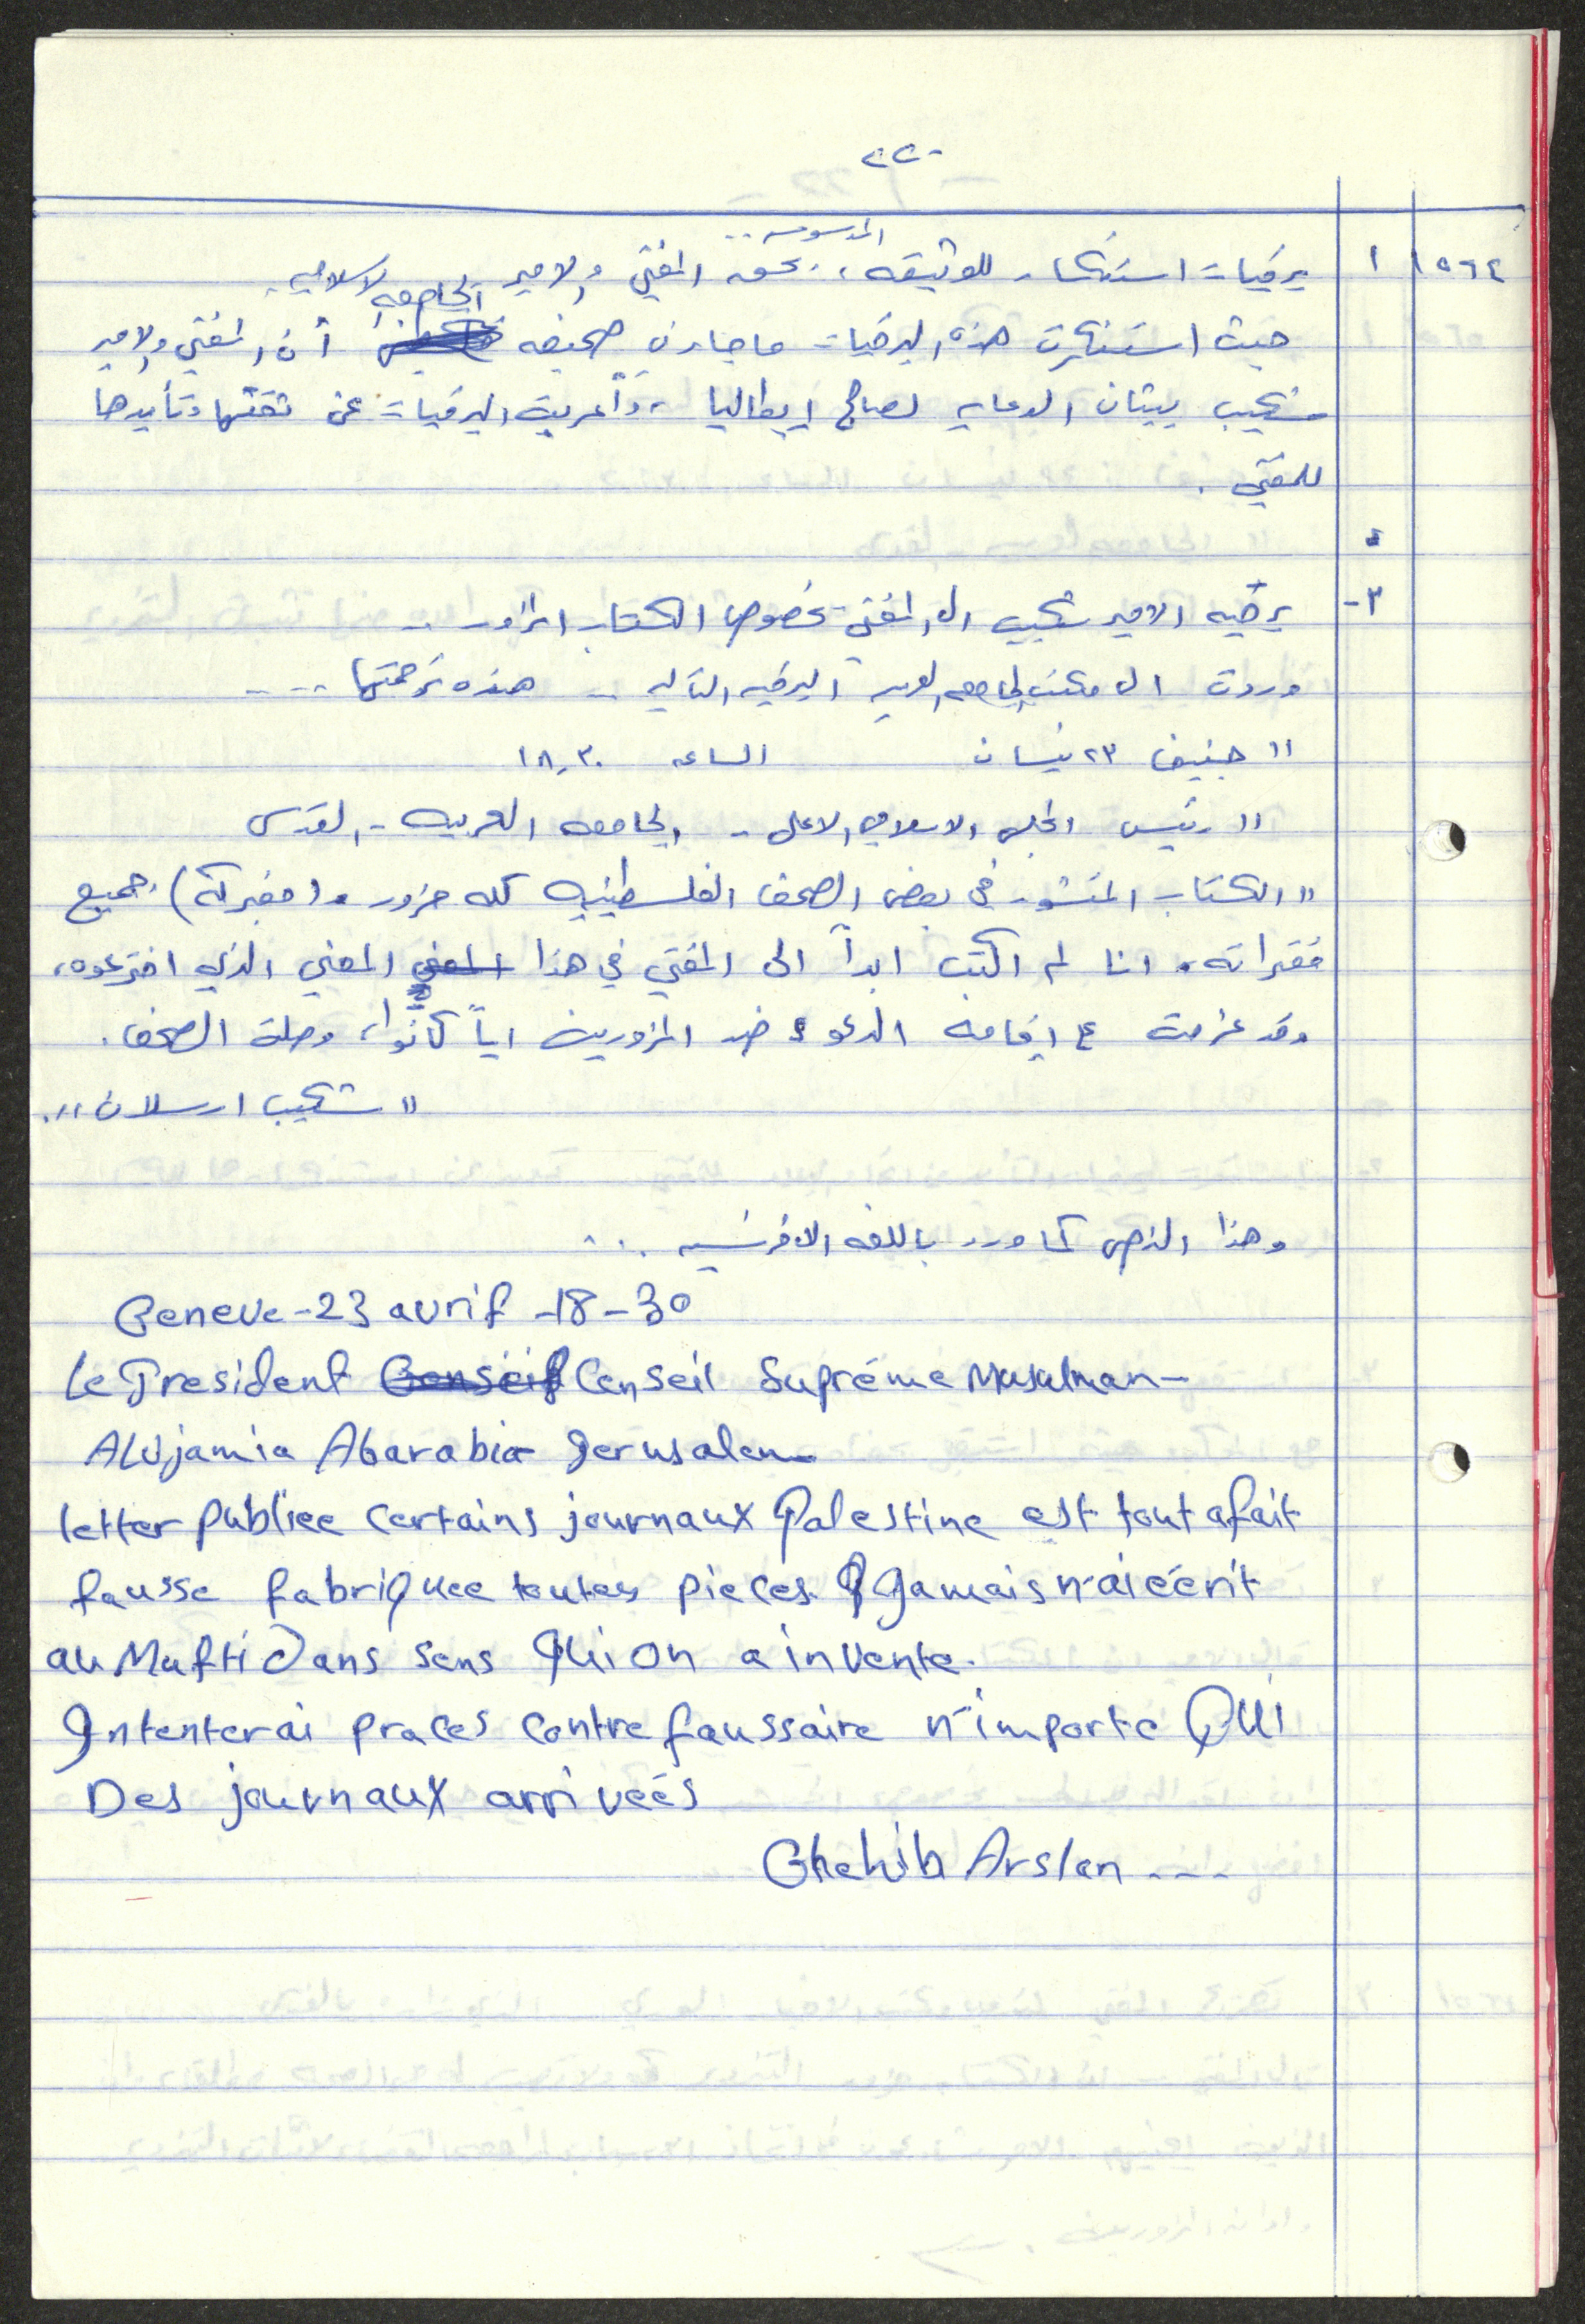 ٢٢٠
١٥٦٤ ١ برقيات استنكار للوثيقه، المدسوسه.. بحق المفتي والامير
حيث استنكرت هذه البرقيات ما جاء في صحيفه الجامعه الاسلاميه أن المفتي والامير
شكيب يبثان الدعايه لصالح إيطاليا، وأعربت البرقيات عن ثقتها وتأييدها
للمفتي.
٣- برقيه الامير شكيب الى المفتي بخصوص الكتاب المزور ..
وردت الى مكتب الجامعه العربيه البرقيه التاليه .. هذه ترجمتها ....
"جنيف ٢٣ نيسان الساعه ١٨,٣٠
"رئيس المجلس الاسلامي الاعلى - الجامعه العربيه - القدس
"الكتاب المنشور في بعض الصحف الفلسطينيه كله مزور و(مفبركه) جميع
فقراته. انا لم اكتب ابداً الى المفتي في هذا المعني المعني الذي اخترعوه،
وقد عزمت ع اقامه الدعوى ضد المزورين اياً كانوا، وصلت الصحف.
"شكيب ارسلان".
وهذا النص كما ورد باللغه الافرنسيه ...
Geneve - 23 avrif - 18 - 30
Le President Conseil Conseil Supréme Musulman -
ALUjamia Abarabia Jerusalem
letter publiee certains journaux Palestine est tout afait
fausse fabriquee toutes pieces. Jamais n'ai eécrit
au Mufti Dans sens Qui on a invente.
Intenterai praces contre faussaire n'importe QUI
Des journaux arriveés
Chehib Arslen ----